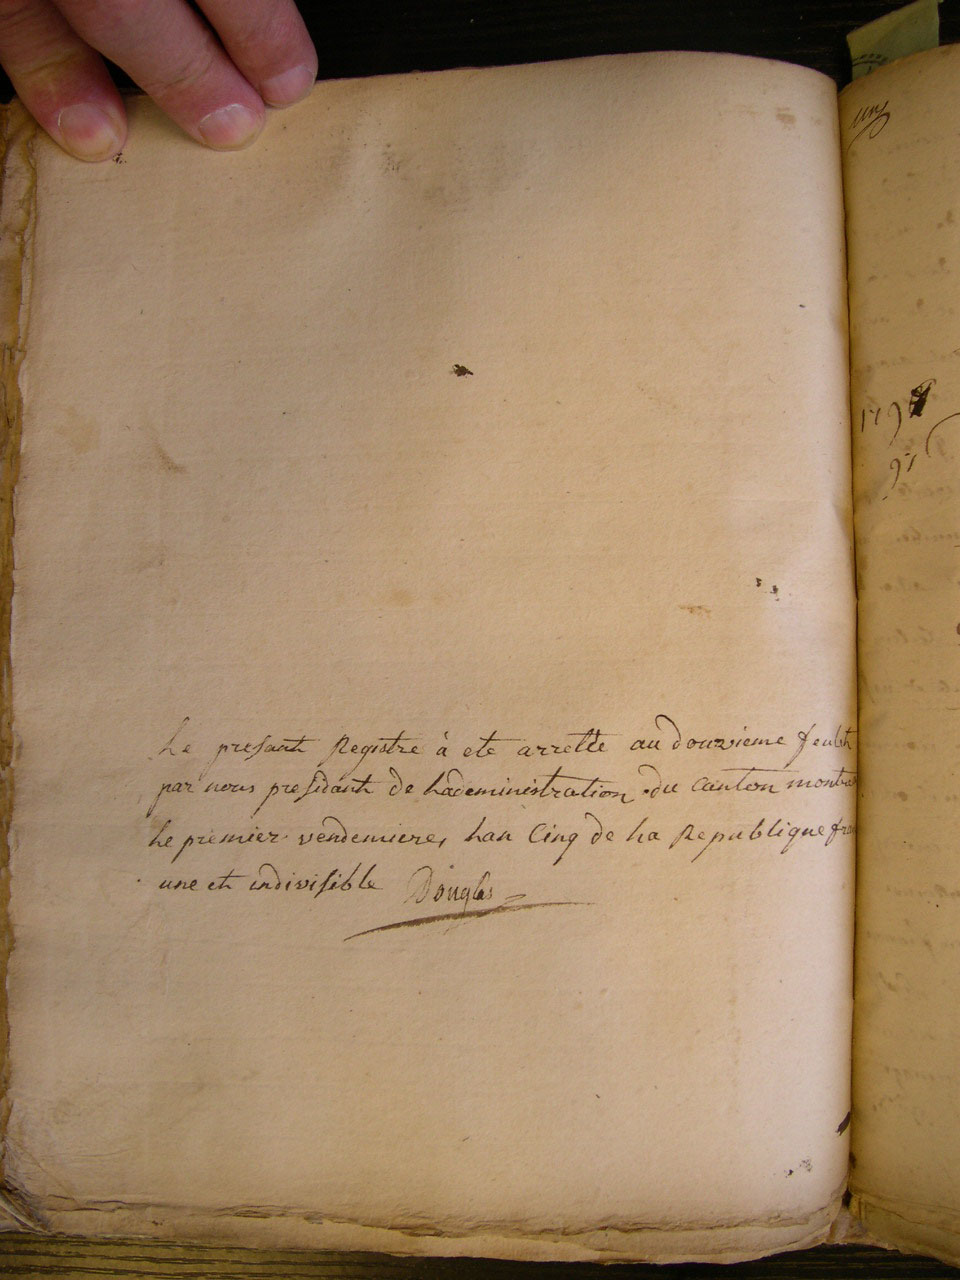 Le presant Registre à ete arretté au douzieme feulet
par nous presidant de ladeministration du Canton montra
le premier vendemiere, lan Cinq de la Republique fra
une et indivisible Douglas
179
91